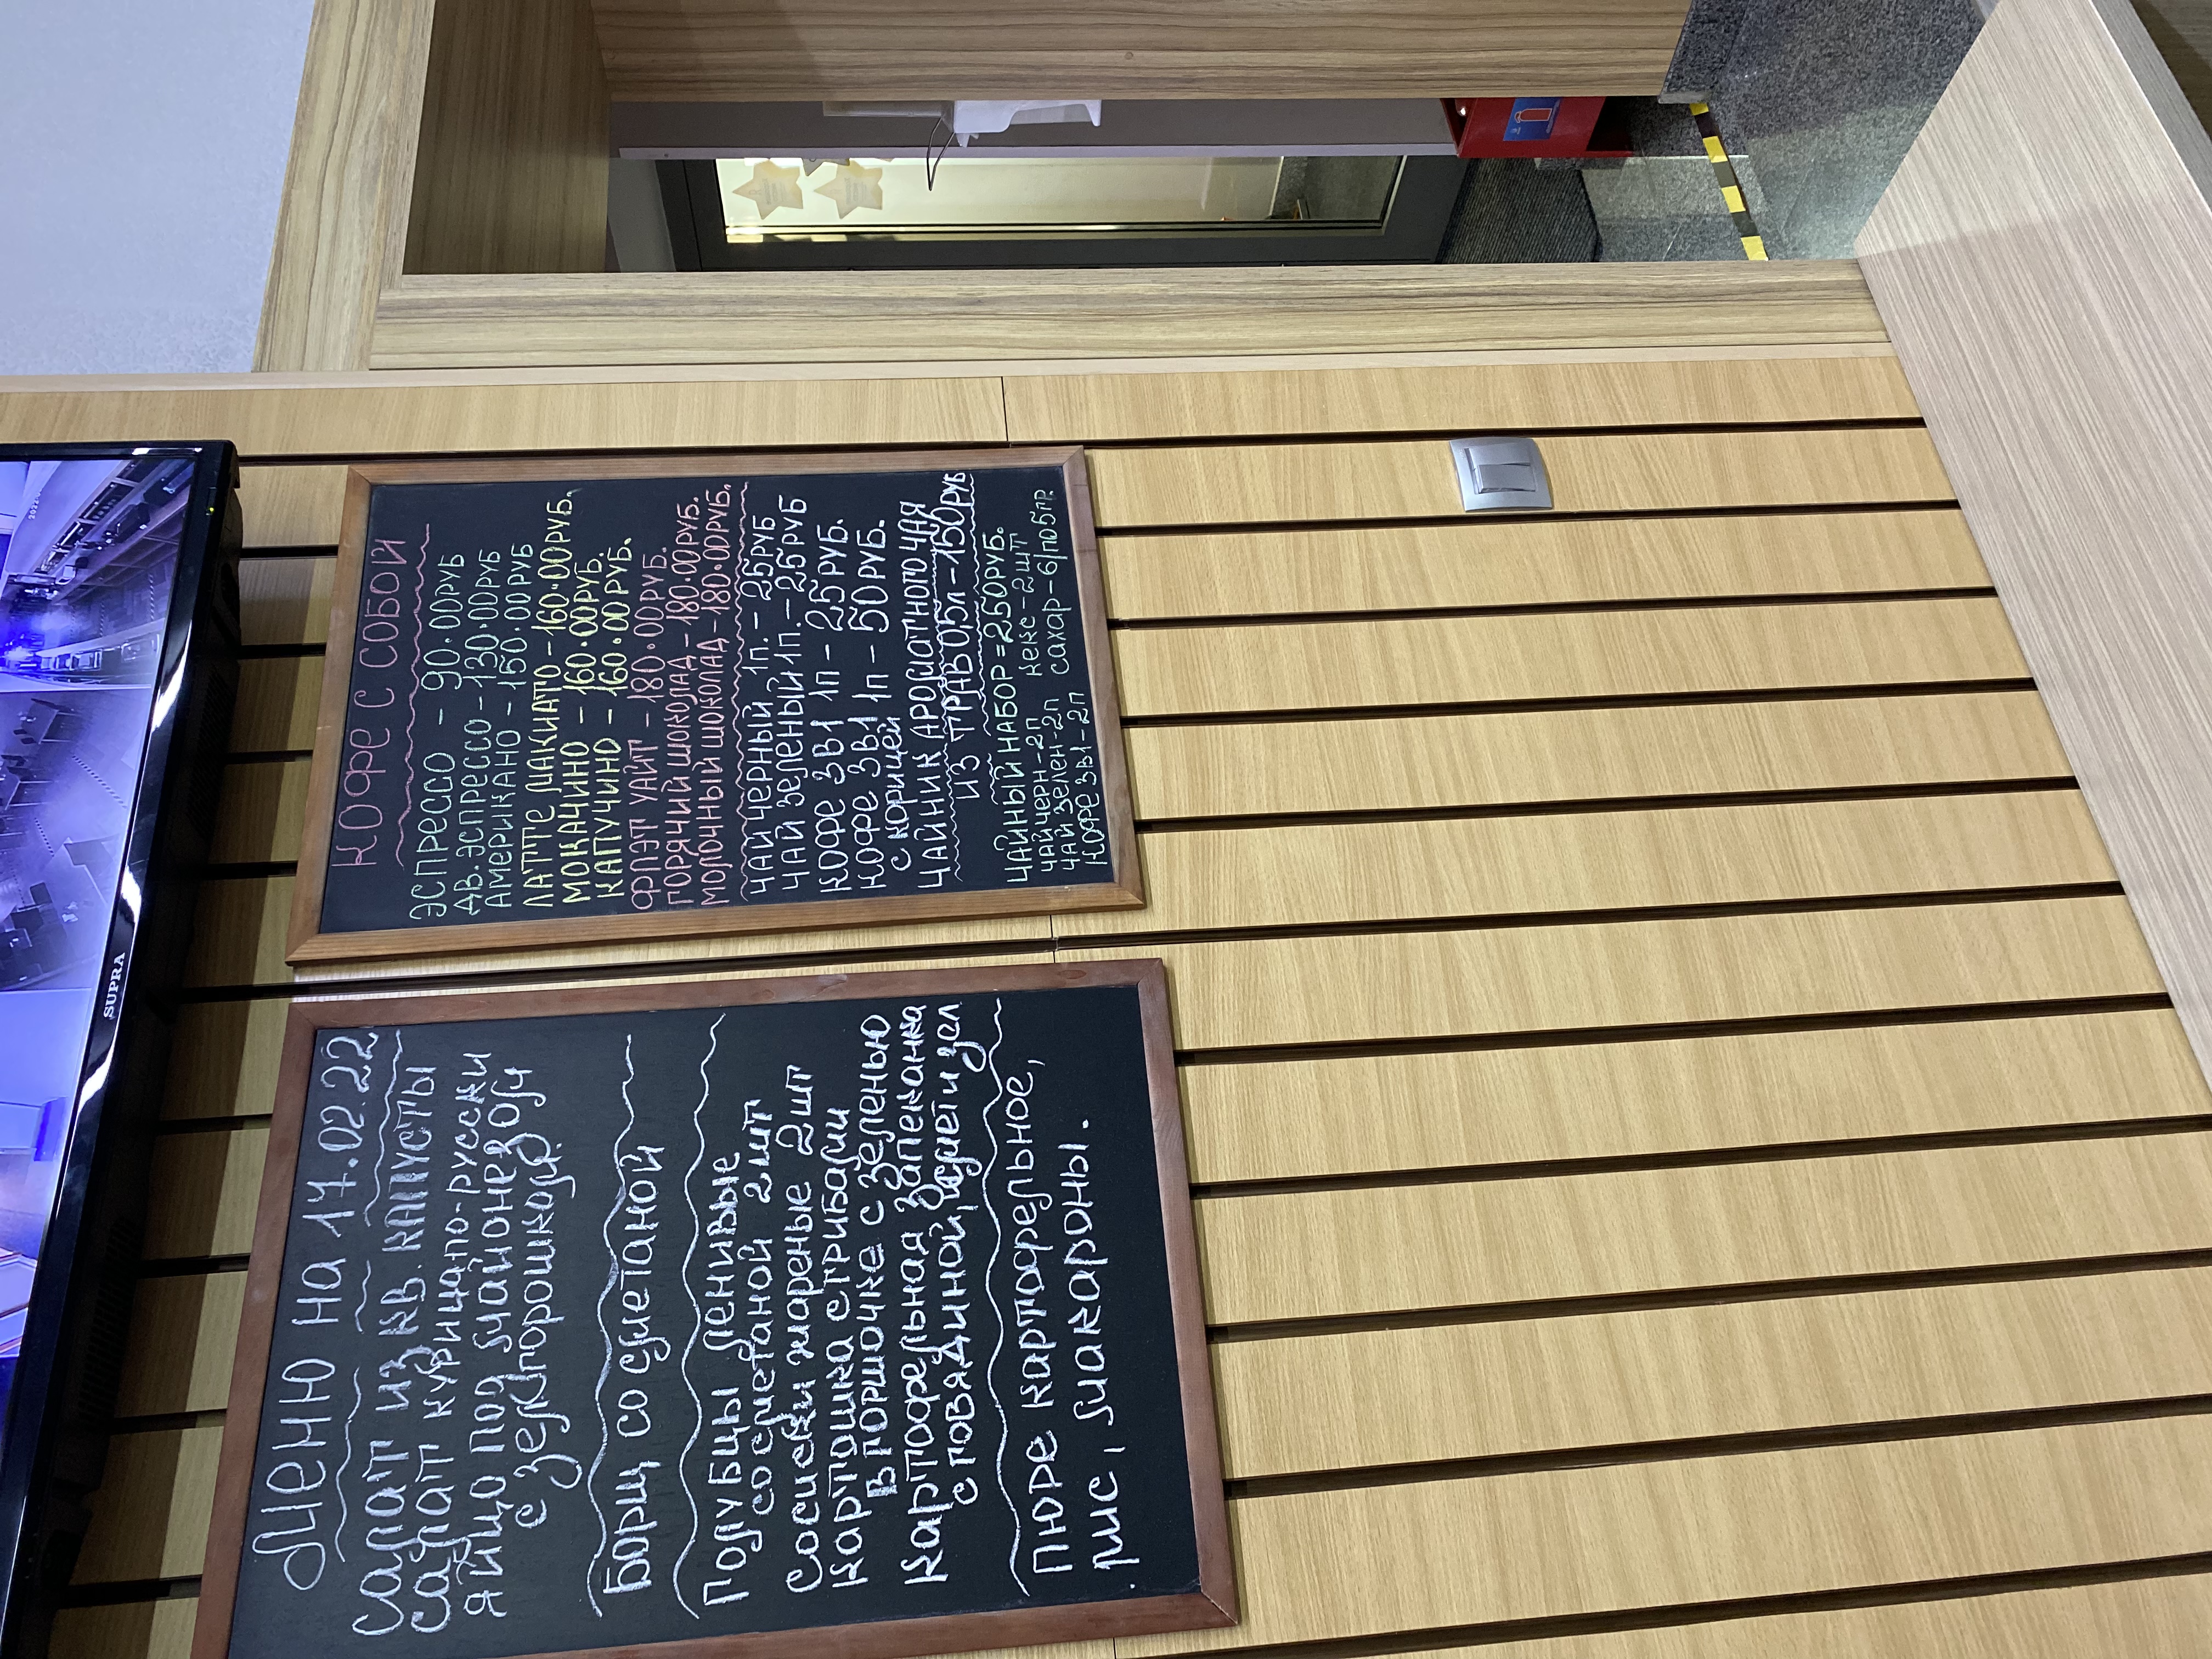 SUPRA
Меню на 17.02.22
Салат из кв. капусты
Салат курица по-русски
Яйцо под майонезом
с зел. горошком
Борщ со сметаной
Голубцы ленивые
со сметаной 2шт
Сосиски жареные 2шт
Картошка с грибами
в горшочке с зеленью
Картофельная запеканка
с говядиной,
Пюре картофельное,
рис, макароны.
КОФЕ С СОБОЙ
ЭСПРЕССО - 90.00РУБ
ДВ. ЭСПРЕССО - 130.00РУБ
АМЕРИКАНО - 150.00РУБ
ЛАТТЕ МАКИАТО - 160.00РУБ.
МОКАЧИНО - 160.00РУБ.
КАПУЧИНО - 160.00РУБ.
ФЛЭТ УАЙТ - 180.00РУБ.
ГОРЯЧИЙ ШОКОЛАД - 180.00РУБ.
МОЛОЧНЫЙ ШОКОЛАД - 180.00РУБ.
ЧАЙ ЧЕРНЫЙ 1п. - 25РУБ
ЧАЙ ЗЕЛЕНЫЙ 1п. - 25РУБ
КОФЕ 3В1 1п - 25РУБ.
КОФЕ 3В1 1п - 50РУБ.
С КОРИЦЕЙ
ЧАЙНИК АРОМАТНОГО ЧАЯ
ИЗ ТРАВ 0,5л - 150РУБ
ЧАЙНЫЙ НАБОР = 250РУБ.
ЧАЙ ЧЕРН-2п кекс-2шт
ЧАЙ ЗЕЛЕН-2п сахар-6/по5гр.
КОФЕ 3В1-2п